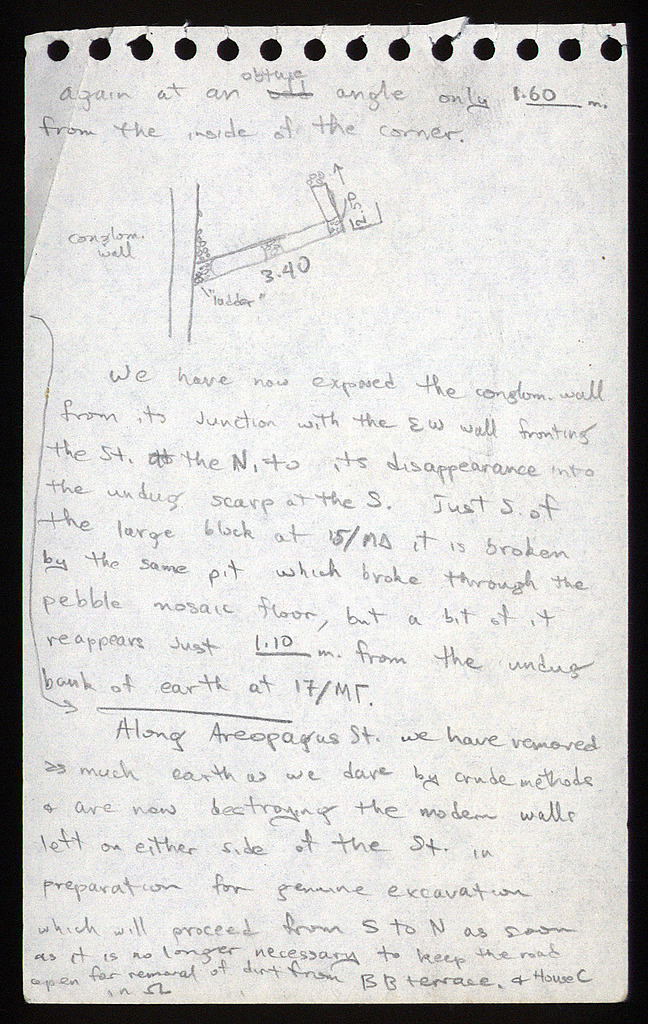 obtuse
again at an odd angle only 1.60 m.
from the inside of the corner.
conglom.
wall
2.50
3.40
"ladder"
We have now exposed the conglom. wall
from its junction with the EW wall fronting
the St. at the N. to its disappearance into
the undug scarp at the S. Just S. of
the large block at 15/ΜΔ it is broken
by the same pit which broke through the
pebble mosaic floor, but a bit of it
reappears just 1.10 m. from the undug
bank of earth at 17/ΜΓ.
Along Areopagus St. we have removed
as much earth as we dare by crude methods
& are now destroying the modern walls
left on either side of the St. in
preparation for genuine excavation
which will proceed from S to N as soon
as it is no longer necessary to keep the road
open for removal of dirt from BB terrace. & House C
in Ω